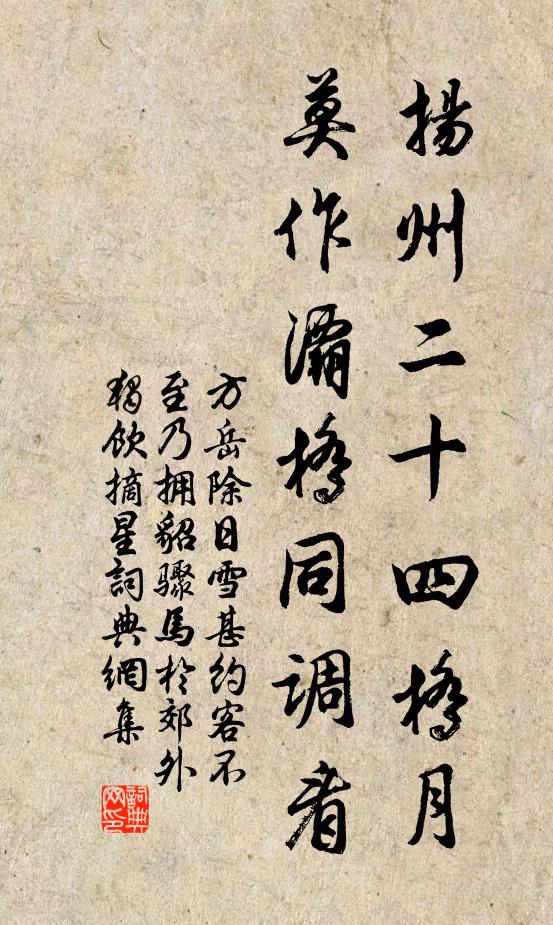 揚州二十四橋月
莫作灞橋同調看
方岳除日雪甚約客不
至乃拥貂骤馬於郊外
獨飲摘星詞典網集
詞典网印